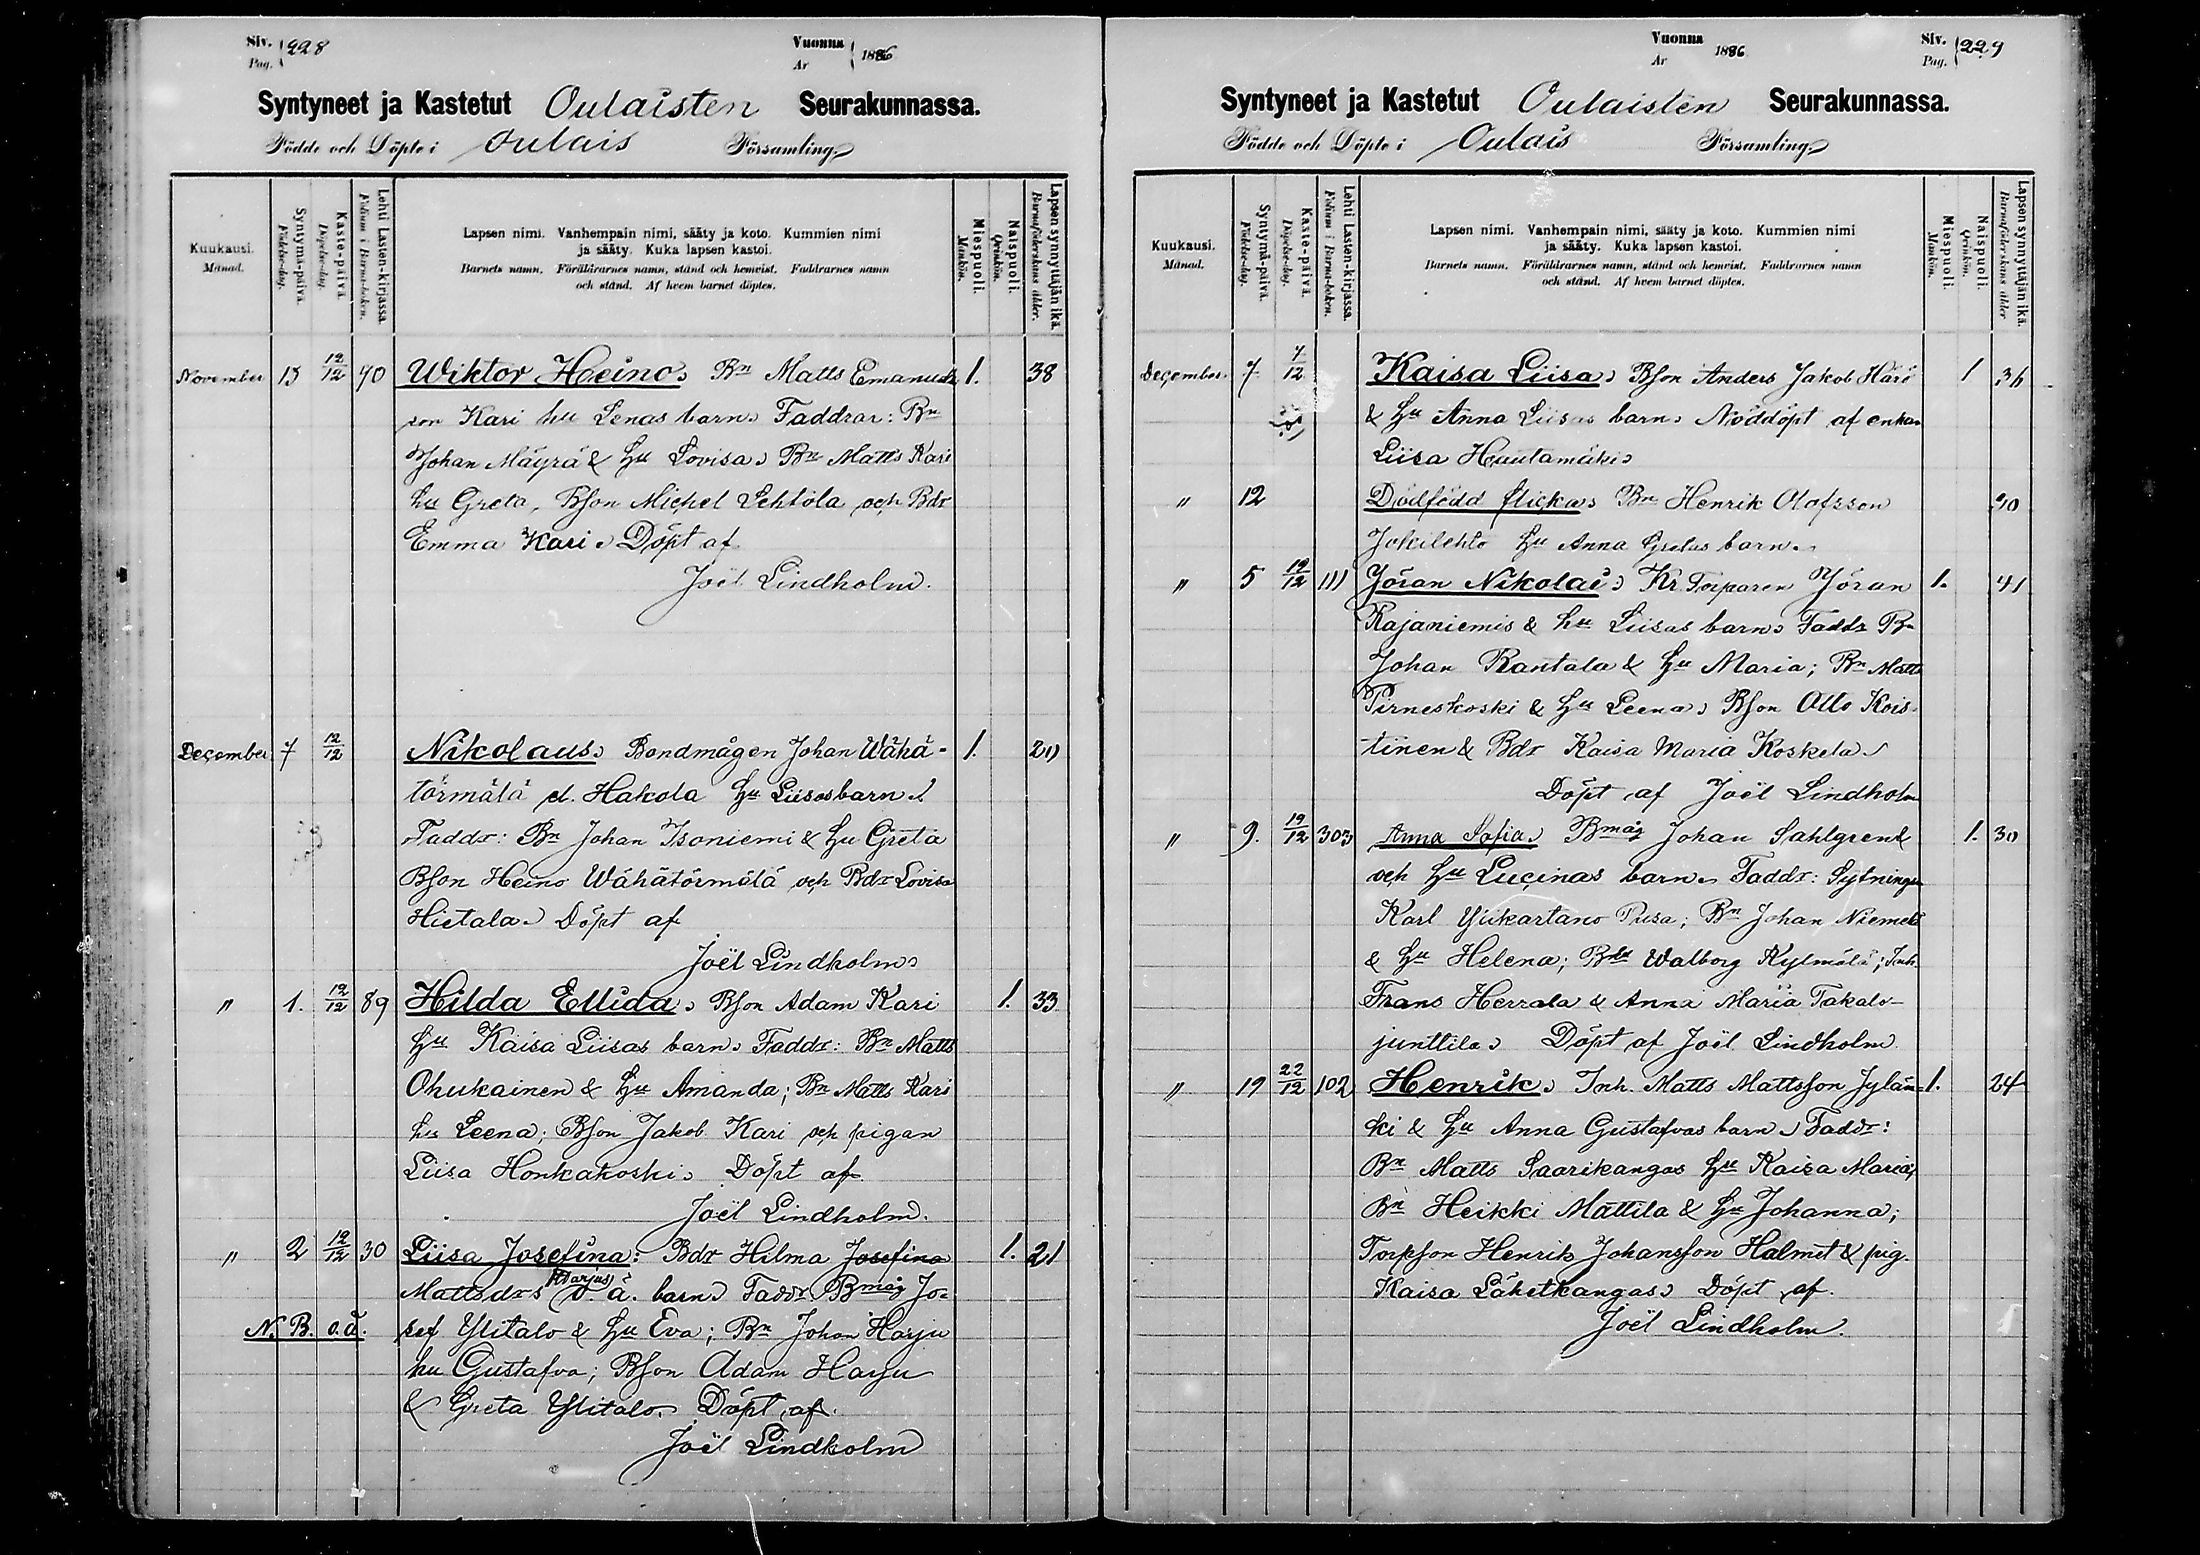 Siv. 228
Pag.
Vuonna 1886
År
Syntyneet ja Kastetut Oulaisten Seurakunnassa.
Födde och Döpte i Oulais Församling
Kuukausi.
Månad.
Syntymä-päivä.
Födelse-dag.
Kaste-päivä.
Döpelse-dag.
Lehti Lasten-kirjassa.
Folium i Barna-boken.
Lapsen nimi. Vanhempain nimi, sääty ja koto. Kummien nimi
ja sääty. Kuka lapsen kastoi.
Barnets namn. Föräldrarnes namn, stånd och hemvist. Faddrarnes namn
och stånd. Af hvem barnet döptes.
Miespuoli.
Mankön.
Naispuoli.
Qvinkön.
Lapsen synnyttäjän ikä.
Barnaföderskans ålder.
November 13 12/12 90 Wiktor Heino, Bn Matts Emanuels 1. 38
son Kari hu Lenas barn. Faddrar: Bn
Johan Mäyrä & hu Lovisa, Bn Matts Kari
hu Greta, Bson Michel Lehtola och Bdr
Emma Kari. Döpt af
Joël Lindholm.
December 7 12/12 Nikolaus. Bondmågen Johan Wähä- 1. 20
törmälä d. Hakola hu Liisas barn.
Faddr: Bn Johan Isoniemi & hu Greta
Bson Heino Wähätörmälä och Bdr Lovisa
Hietala. Döpt af
Joël Lindholm.
" 1. 12/12 89 Hilda Ellida. Bson Adam Kari 1. 33
hu Kaisa Liisas barn. Faddr: Bn Matts
Ohukainen & hu Amanda; Bn Matts Kari
hu Leena; Bson Jakob Kari och pigan
Liisa Honkakoski. Döpt af
Joël Lindholm.
" 2 12/12 30 Liisa Josefina: Bdr Hilma Josefina 1. 21
Mattsdrs Harjus o. ä. barn. Faddr Bmåg Jo-
N. B. o. ä. sef Ylitalo & hu Eva; Bn Johan Harju
hu Gustafva; Bson Adam Harju
& Greta Ylitalo. Döpt af
Joël Lindholm
Vuonna 1886
År
Siv. 229
Pag.
Syntyneet ja Kastetut Oulaisten Seurakunnassa.
Födde och Döpte i Oulais Församling
Kuukausi.
Månad.
Syntymä-päivä.
Födelse-dag.
Kaste-päivä.
Döpelse-dag.
Lehti Lasten-kirjassa.
Folium i Barna-boken.
Lapsen nimi. Vanhempain nimi, sääty ja koto. Kummien nimi
ja sääty. Kuka lapsen kastoi.
Barnets namn. Föräldrarnes namn, stånd och hemvist. Faddrarnes namn
och stånd. Af hvem barnet döptes.
Miespuoli.
Mankön.
Naispuoli.
Qvinkön.
Lapsen synnyttäjän ikä.
Barnaföderskans ålder
December. 7 7/12 Kaisa Liisa, Bson Anders Jakob Häri 1 36
& hu Anna Liisas barn. Nöddöpt af enkan
Liisa Huulamäki
" 12 Dödfödd flicka, Bn Henrik Olofsson 30
Jokilehto hu Anna Gretas barn.
" 5 12/12 111 Jöran Nikolai. Kr. Torparen Jöran 1. 41
Rajaniemis & hu Liisas barn. Faddr Bn
Johan Rantala & hu Maria; Bn Matts
Pirneskoski & hu Leena, Bson Otto Kois-
tinen & Bdr Kaisa Maria Koskela.
Döpt af Joël Lindholm
" 9. 12/12 303 Anna Sofia. Bmåg Johan Sahlgrens 1. 30
och hu Lucinas barn. Faddr: Sytningen
Karl Ylikartano Pusa; Bn Johan Niemelä
& hu Helena; Bdr Walborg Kylmälä; Inh.
Frans Herrala & Anna Maria Takalo-
junttila. Döpt af Joël Lindholm
" 19 22/12 102 Henrik. Inh. Matts Mattsson Jylän- 1. 24
ki & hu Anna Gustafvas barn. Faddr:
Bn Matts Saarikangas hu Kaisa Maria;
Bn Heikki Mattila & hu Johanna;
Torpson Henrik Johansson Halmet & pig.
Kaisa Lähetkangas. Döpt af
Joël Lindholm.